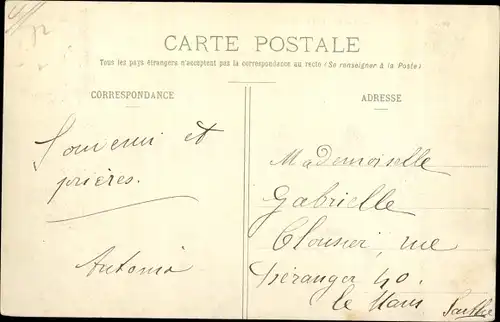 CARTE POSTALE
Tous les pays étrangers n'acceptent pas la correspondance au recto (Se renseigner à la Poste)
CORRESPONDANCE
ADRESSE
Souvenir et
prières.
Antonia
Mademoiselle
Gabrielle
rue
Béranger 40.
le Mans Sarthe